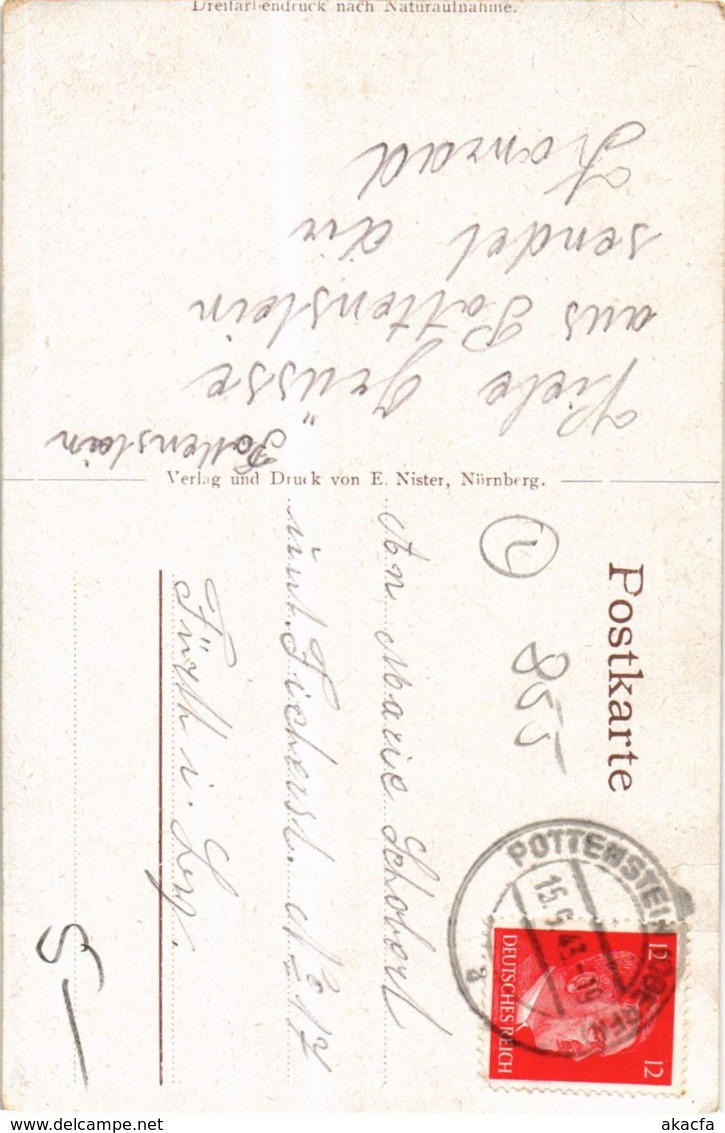 Dreifarbendruck nach Naturaufnahme.
Viele Grüsse
aus Pottenstein
sendet dir
Konrad
Pottenstein
Verlag und Druck von E. Nister, Nürnberg.
Postkarte
855
An Marie Schobert
Fürth i.
No 17
5
POTTENSTEIN
12
12
DEUTSCHES REICH
akacfa